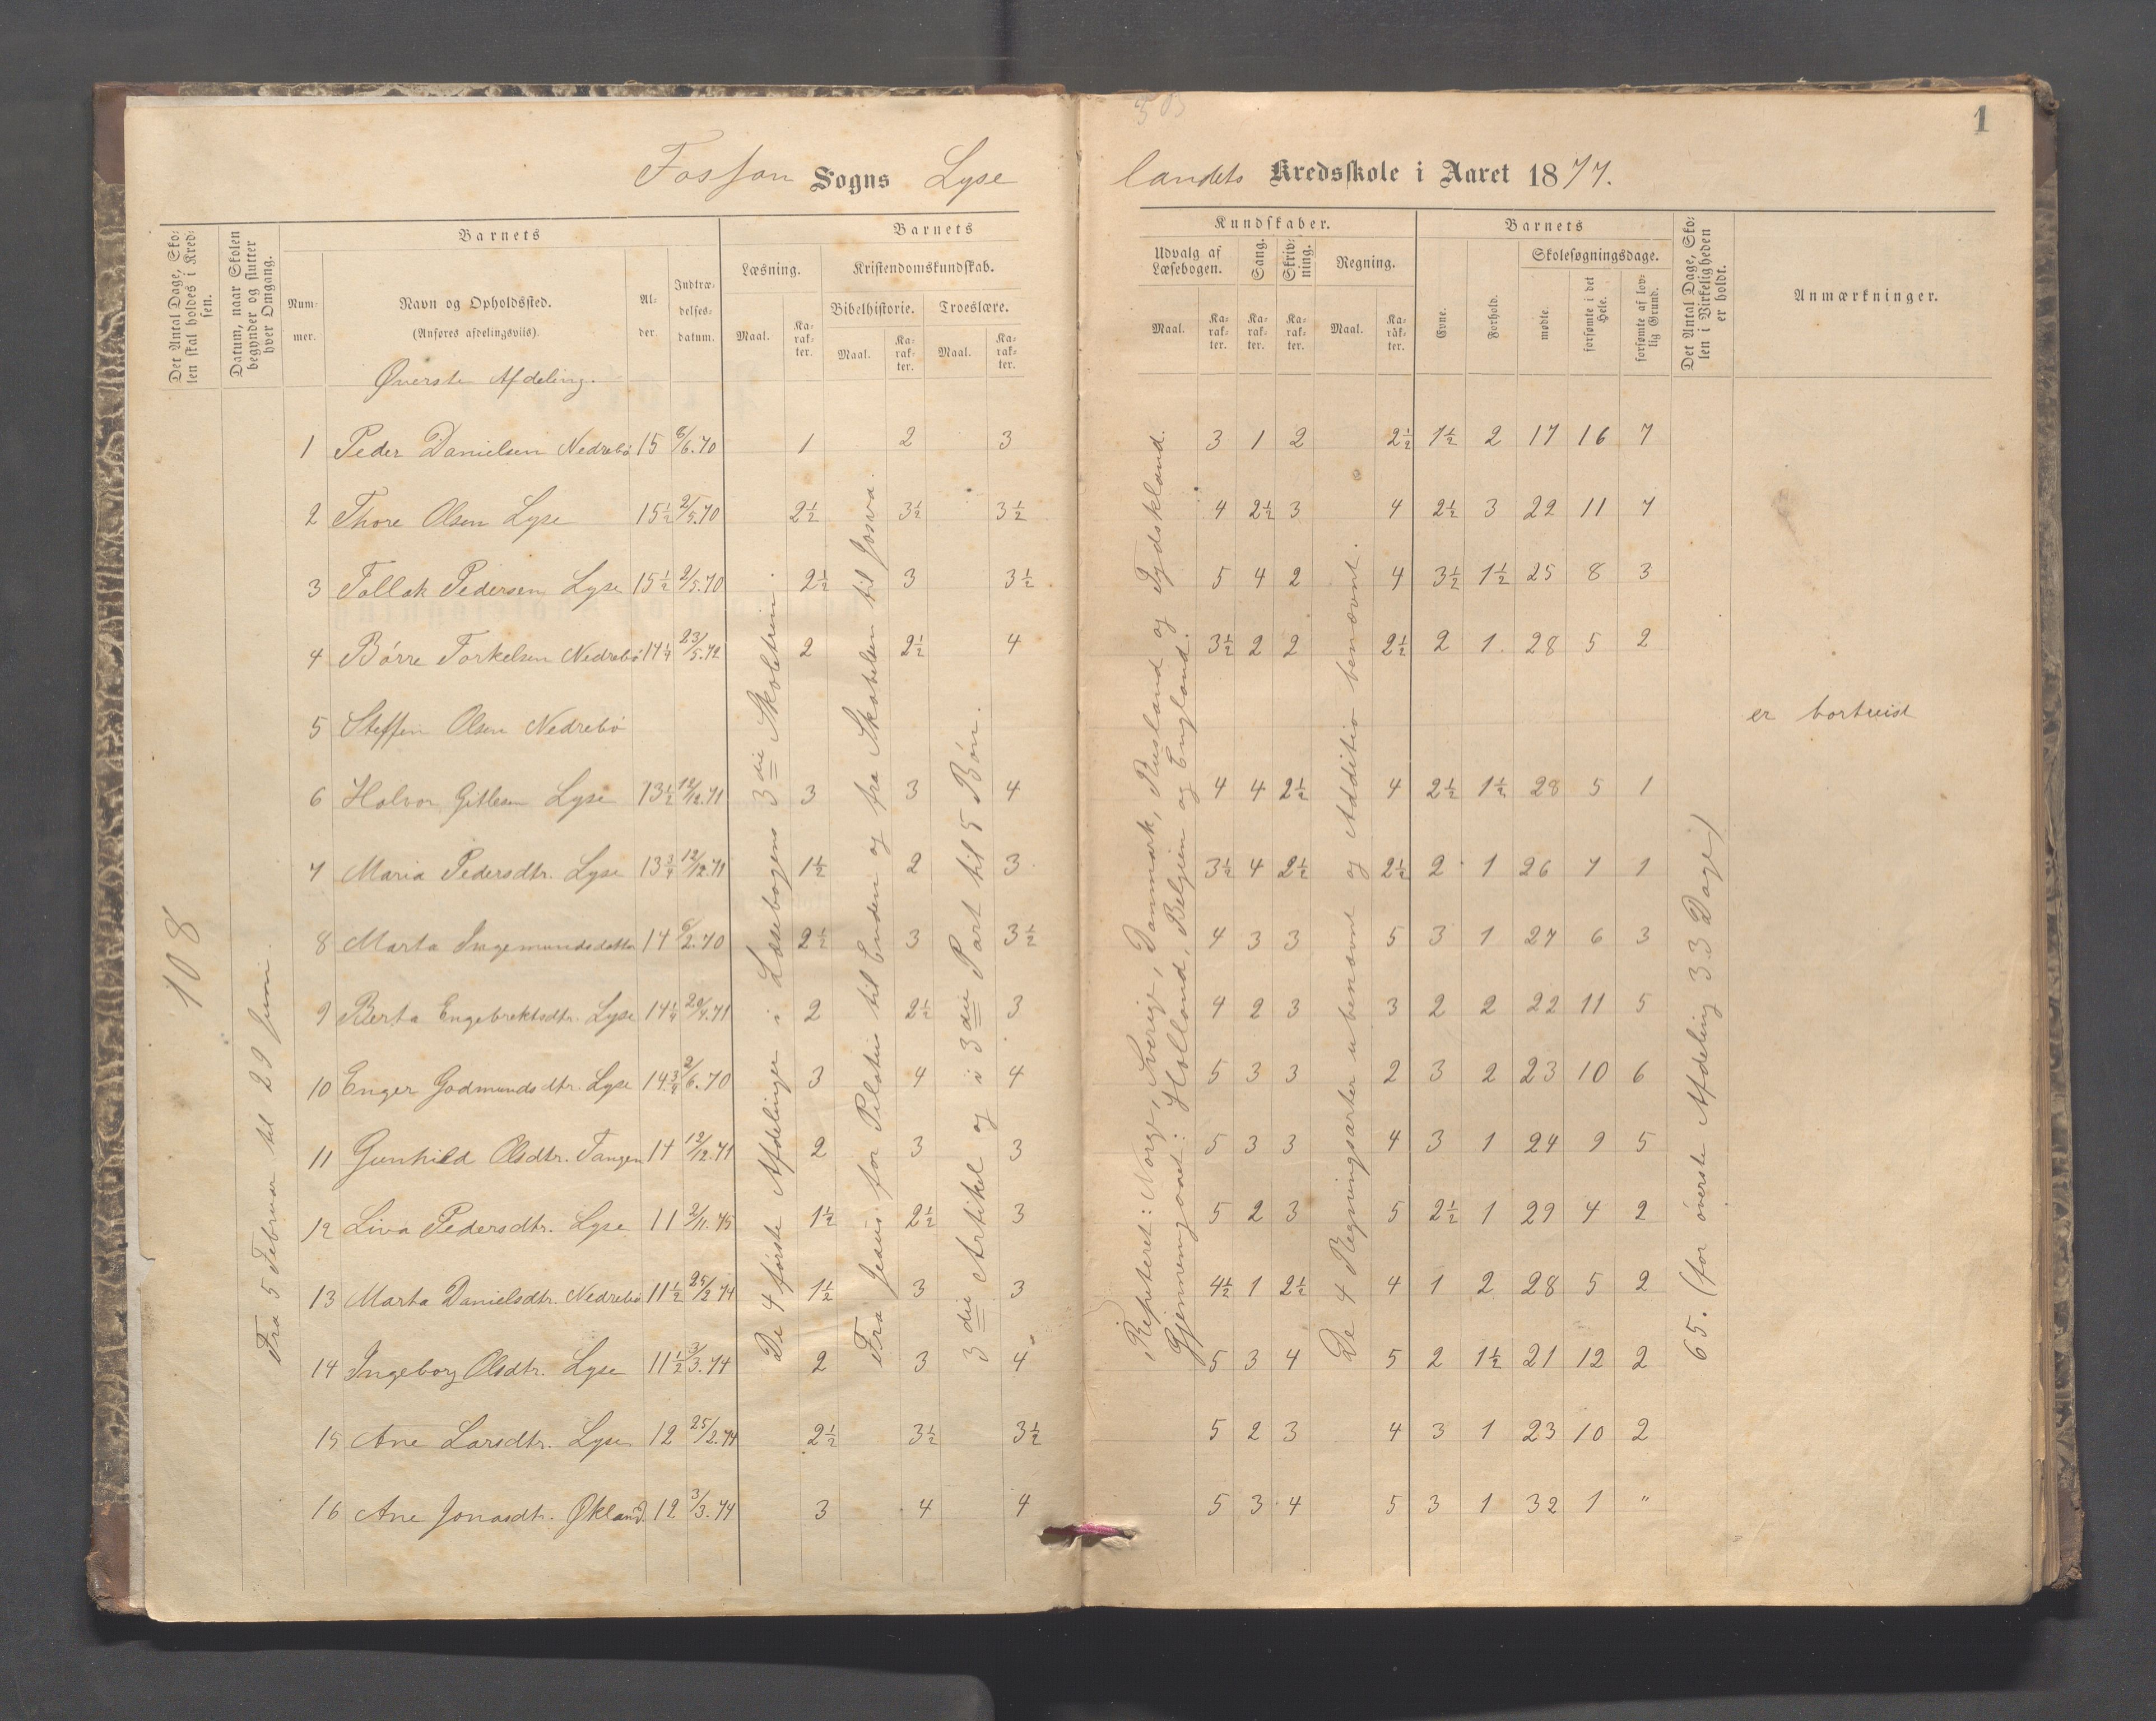 1
Fossan Sogns Lyse
landets Kredsskole i Aaret 1877.
Det Antal Dage, Skolen skal holdes i Kredsen.
Datum, naar Skolen begynder og slutter hver Omgang.
Barnets
Nummer.
Navn og Opholdssted.
(Anføres afdelingsviis).
Alder.
Indtrædelses-datum.
Barnets
Læsning.
Maal.
Karakter.
Kristendomskundskab.
Bibelhistorie.
Maal.
Karakter.
Troeslære.
Maal.
Karakter.
Kundskaber.
Udvalg af Læsebogen.
Maal.
Karakter.
Sang.
Karakter.
Skrivning.
Karakter.
Regning.
Maal.
Karakter.
Barnets
Evne.
Forhold.
Skolesøgningsdage.
mødte.
forsømte i det Hele.
forsømte af lovlig Grund.
Det Antal Dage, Skolen i Virkeligheden er holdt.
Anmærkninger.
Øverste Afdeling.
108
Fra 5 Februar til 29 Juni.
De 4 første Afdelinger i Læsebogens 3die Skoletrin.
Fra Jesus for Pilatus til Enden og fra Skabelsen til Josva.
3die Artikel og i 3die Part til 5 Bøn.
Repeteret: Norge, Sverige, Danmark, Rusland og Tydskland.
Gjennemgaaet: Holland, Belgien og England.
De 4 Regningsarter ubenævnt og Additio benævnt.
65. (for øverste Afdeling 33 Dage)
1 Peder Danielsen Nedrebø 15 6/6.70 1 2 3 3 1 2 2½ 1½ 2 17 16 7
2 Thore Olsen Lyse 15½ 2/5.70 2½ 3½ 3½ 4 2½ 3 4 2½ 3 22 11 7
3 Tollak Pedersen Lyse 15½ 2/5.70 2½ 3 3½ 5 4 2 4 3½ 1½ 25 8 3
4 Børre Torkelsen Nedrebø 14¼ 23/5.72 2 2½ 4 3½ 2 2 2½ 2 1 28 5 2
5 Steffen Olsen Nedrebø er bortreist
6 Halvor Gitlesen Lyse 13½ 12/12.71 3 3 4 4 4 2½ 4 2½ 1½ 28 5 1
7 Maria Pedersdtr. Lyse 13¾ 12/12.71 1½ 2 3 3½ 4 2½ 2½ 2 1 26 7 1
8 Marta Ingemundsdatter 14 6/2.70 2½ 3 3½ 4 3 3 5 3 1 27 6 3
9 Berta Engebrektsdtr. Lyse 14¼ 20/4.71 2 2½ 3 4 2 3 3 2 2 22 11 5
10 Enger Godmundsdtr. Lyse 14¾ 2/6.70 3 4 4 5 3 3 2 3 2 23 10 6
11 Gunhild Olsdtr. Tangen 14 12/12.71 2 3 3 5 3 3 4 3 1 24 9 5
12 Liva Pedersdtr. Lyse 11 2/11.75 1½ 2½ 3 5 2 3 5 2½ 1 29 4 2
13 Marta Danielsdtr. Nedrebø 11½ 25/2 74 1½ 3 3 4½ 1 2½ 4 1 2 28 5 2
14 Ingeborg Olsdtr. Lyse 11½ 3/3.74 2 3 4 5 3 4 5 2 1½ 21 12 2
15 Ane Larsdtr. Lyse 12 25/2.74 2½ 3½ 3½ 5 2 3 4 3 1 23 10 2
16 Ane Jonasdtr. Økland. 12 3/3.74 3 4 4 5 3 4 5 3 1 32 1 "